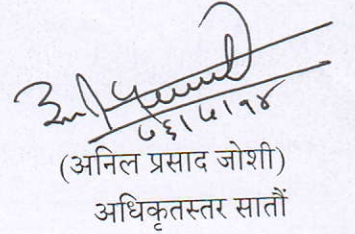 (अनिल प्रसाद जोशी)
अधिकृतस्तर सातौं